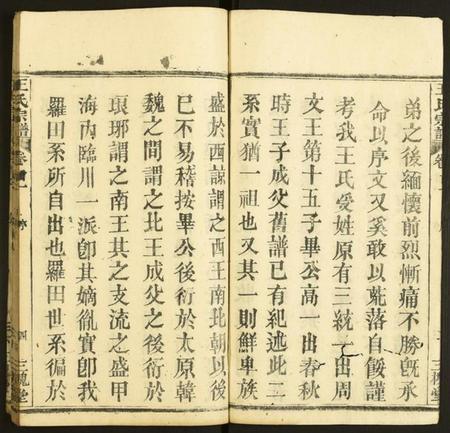 弟之後緬懷前烈慚痛不勝旣承
命以序文又奚敢以荒落自餒謹
考我王氏爰姓原有三統一出周
文王第十五子畢公高一出春秋
時王子成父舊譜已有紀述此二
系實猶一祖也又其一則鮮卑族
盛於西諒謂之西王南北朝以後
已不易稽按畢公後衍於太原韓
魏之間謂之北王成父之後衍於
琅琊謂之南王其之支流之盛甲
海內臨川一派卽其嫡胤實卽我
羅田系所自出也羅田世系徧於
王氏宗譜
卷
四
三槐堂